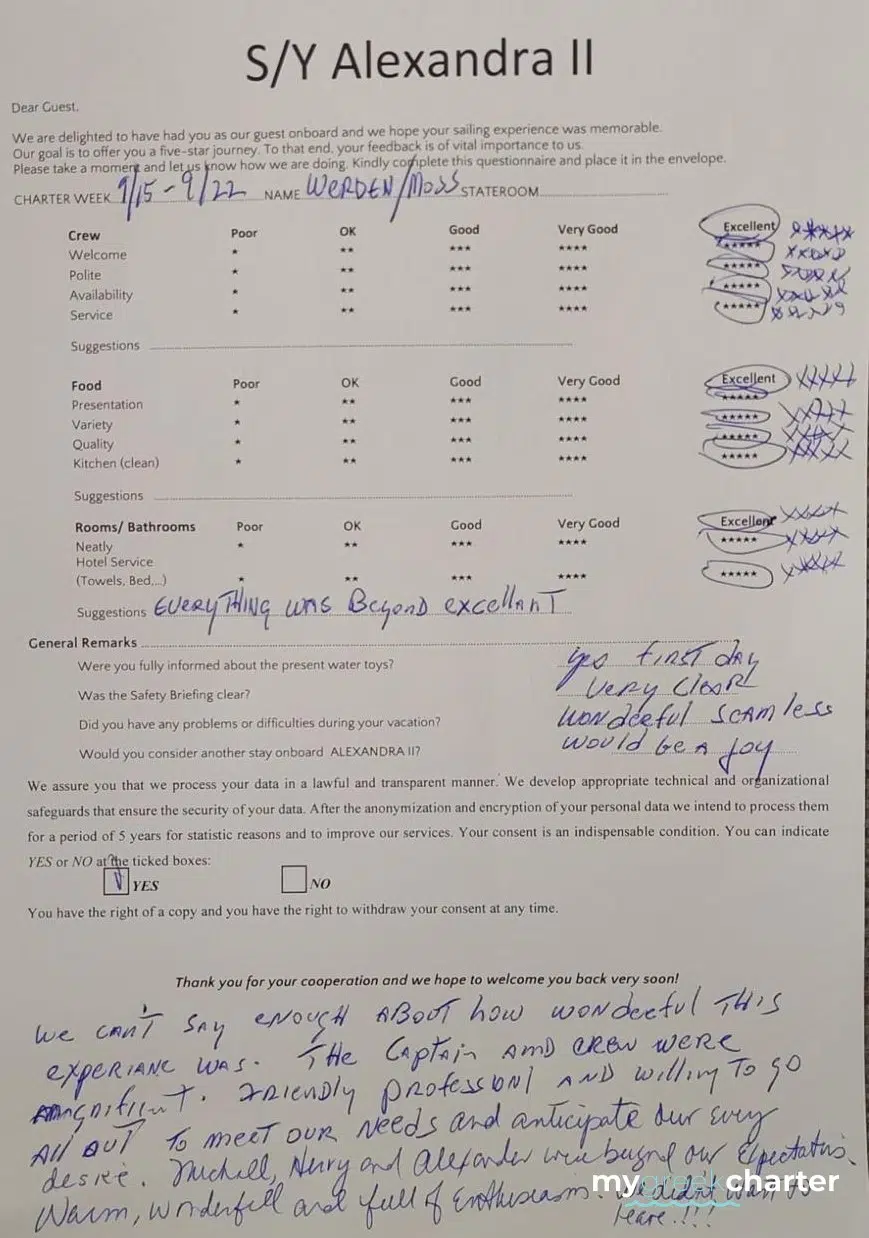 S/Y Alexandra II
Dear Guest,
We are delighted to have had you as our guest onboard and we hope your sailing experience was memorable.
Our goal is to offer you a five-star journey. To that end, your feedback is of vital importance to us.
Please take a moment and let us know how we are doing. Kindly complete this questionnaire and place it in the envelope.
CHARTER WEEK 9/15 - 9/22 NAME WERDEN/MOSS STATEROOM
Crew Poor OK Good Very Good Excellent xxxxx
Welcome * ** *** **** *****
Polite * ** *** **** *****
Availability * ** *** **** *****
Service * ** *** **** *****
Suggestions
Food Poor OK Good Very Good Excellent xxxxx
Presentation * ** *** **** *****
Variety * ** *** **** *****
Quality * ** *** **** *****
Kitchen (clean) * ** *** **** *****
Suggestions
Rooms/ Bathrooms Poor OK Good Very Good Excellent xxxxx
Neatly * ** *** **** *****
Hotel Service
(Towels, Bed,...) * ** *** **** *****
Suggestions EVERYTHING WAS Beyond excellANT
General Remarks
Were you fully informed about the present water toys? yes FIRST dAy
Was the Safety Briefing clear? Very CleaR
Did you have any problems or difficulties during your vacation? WONderful SeAMless
Would you consider another stay onboard ALEXANDRA II? would be A Joy
We assure you that we process your data in a lawful and transparent manner. We develop appropriate technical and organizational
safeguards that ensure the security of your data. After the anonymization and encryption of your personal data we intend to process them
for a period of 5 years for statistic reasons and to improve our services. Your consent is an indispensable condition. You can indicate
YES or NO at the ticked boxes:
YES NO
You have the right of a copy and you have the right to withdraw your consent at any time.
Thank you for your cooperation and we hope to welcome you back very soon!
We CAN'T SAY eNOUGH ABOUT how WONdeeful THIS
experianc WAS. THe CAptain AND CREW WERE
mAgnificunT. FRIENDly professionl AND willing To go
All OUT To meeT OUR Needs and anticipate our every
desire. Michall, Henry and Alexander were beyond our Expectations.
Warm, wonderfull and full of Enthusiasm. We didn't want to
leave.!!!
mygreekcharter